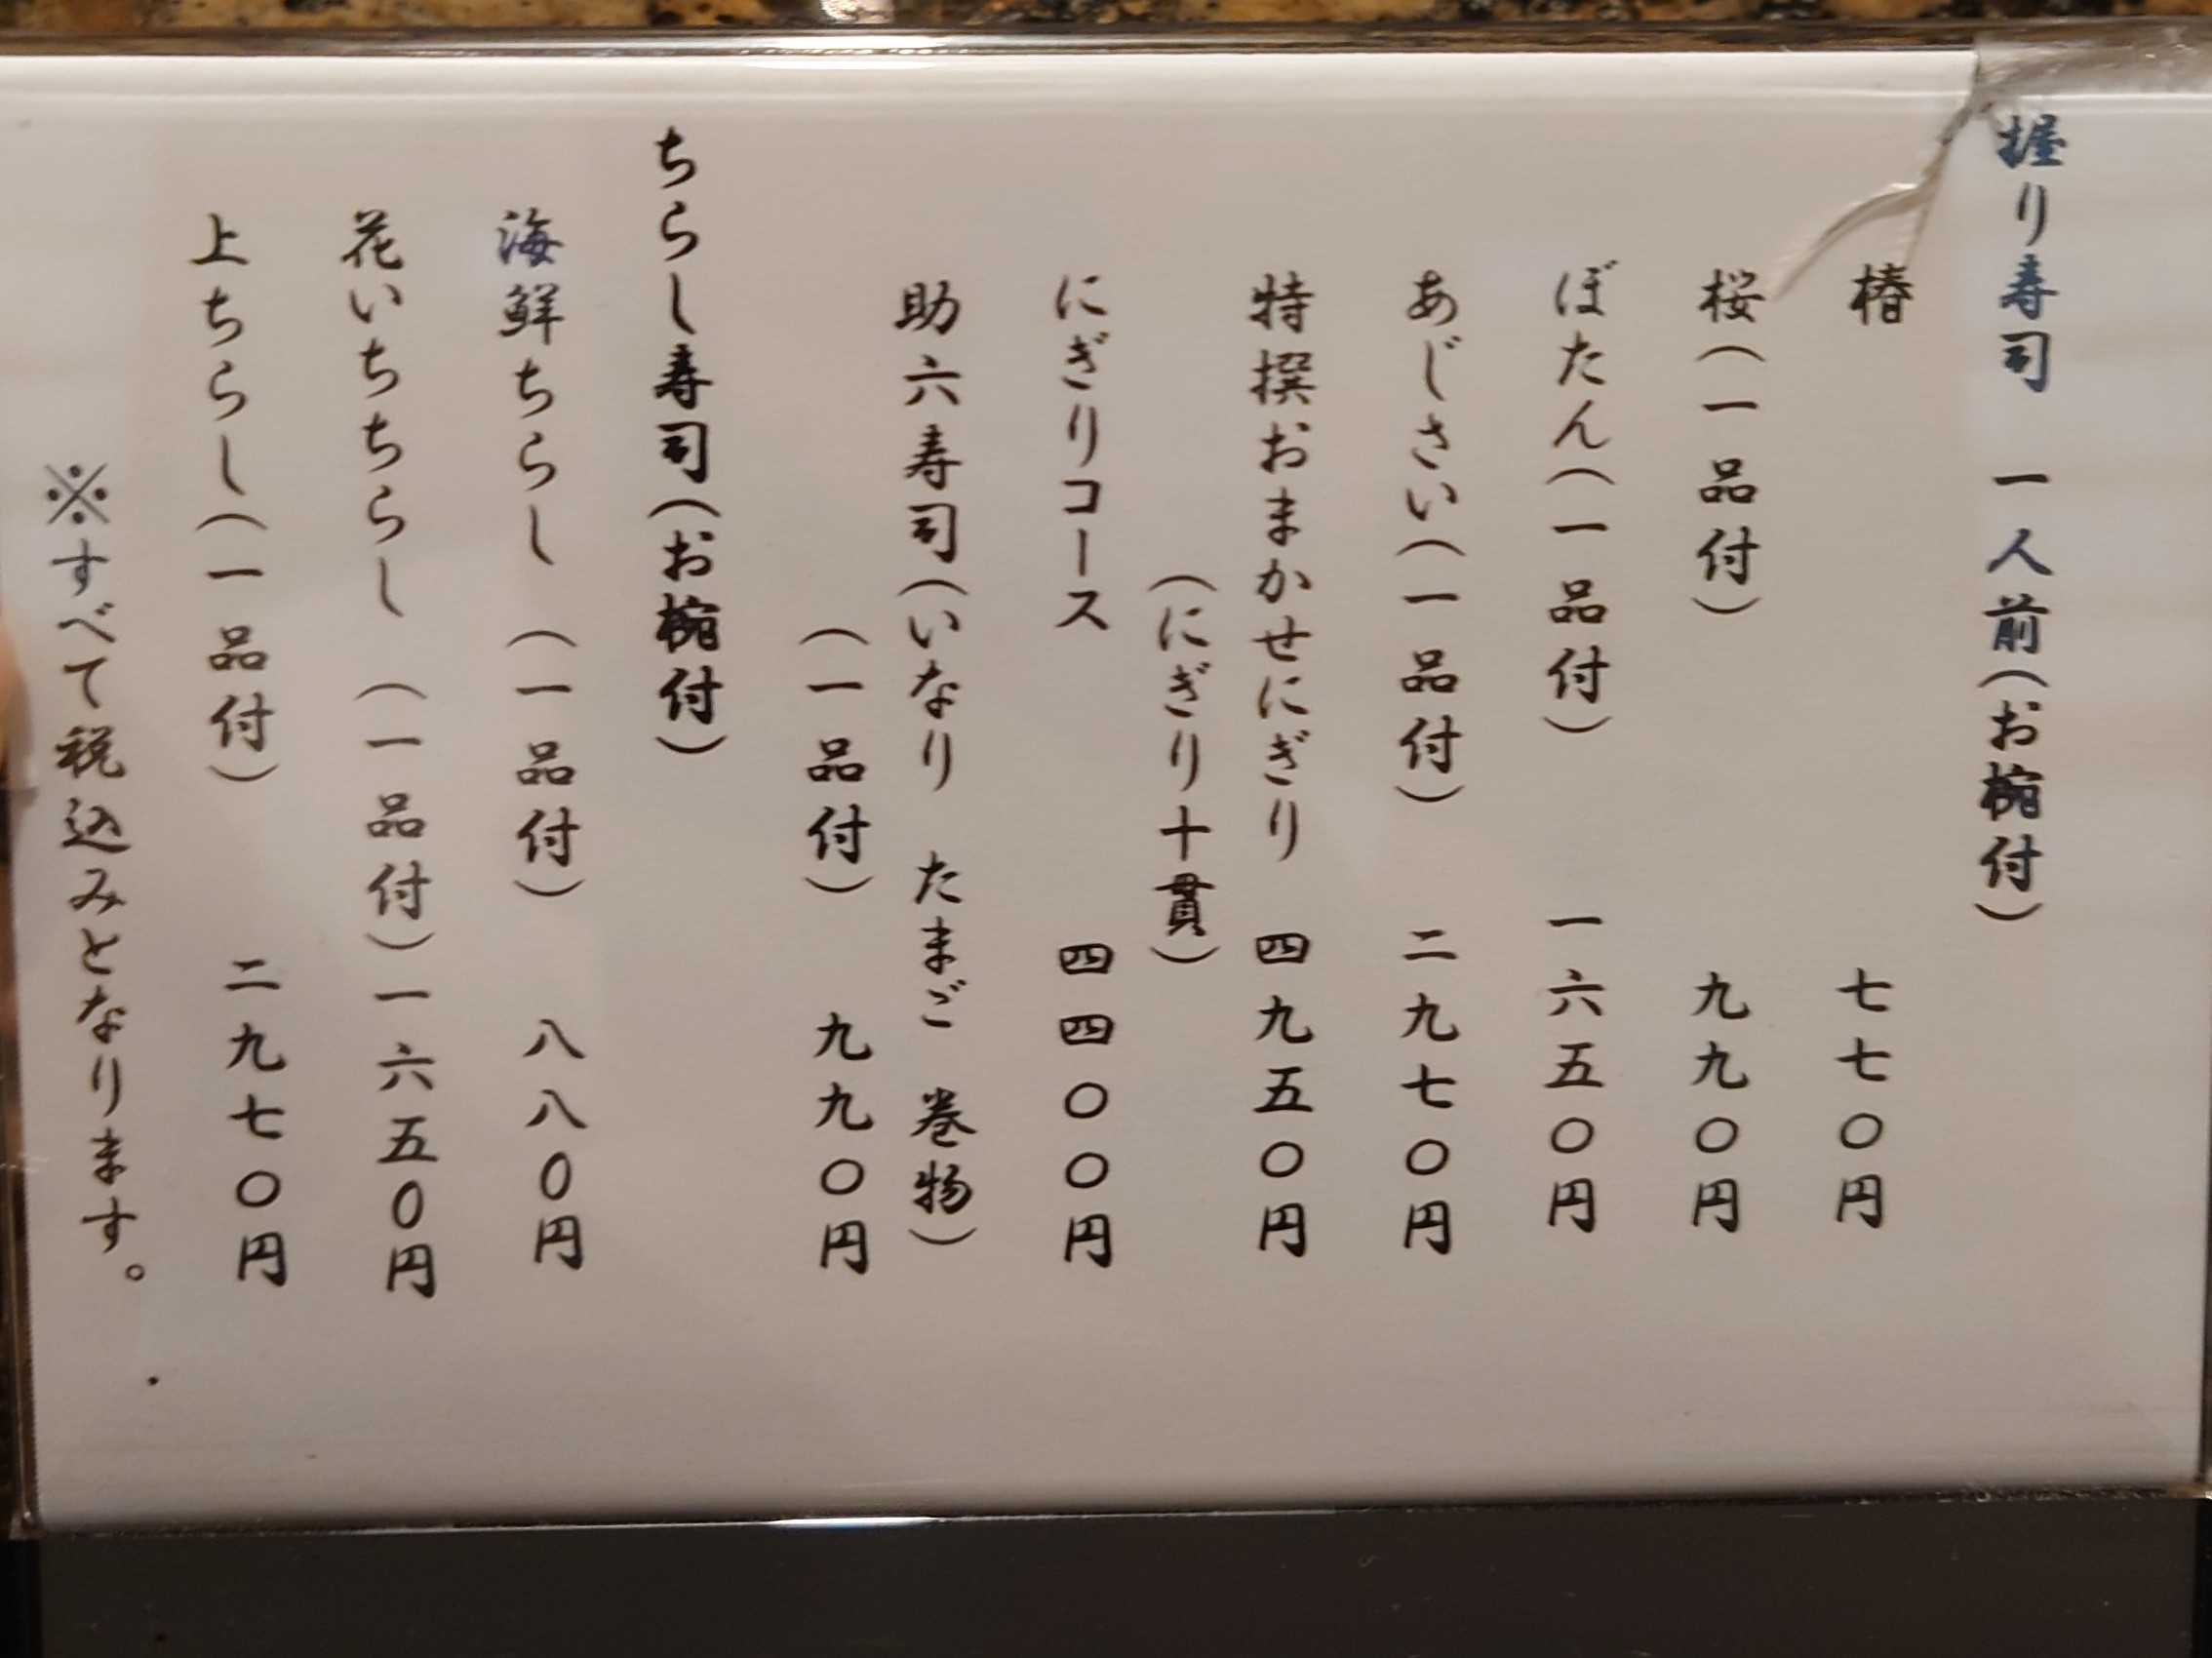 握り寿司　一人前（お椀付）
椿　七七〇円
桜（一品付）　九九〇円
ぼたん（一品付）　一六五〇円
あじさい（一品付）　二九七〇円
特撰おまかせにぎり　四九五〇円
（にぎり十貫）
にぎりコース　四四〇〇円
助六寿司（いなり　たまご　巻物）
（一品付）　九九〇円
ちらし寿司（お椀付）
海鮮ちらし　（一品付）　八八〇円
花いちちらし　（一品付）一六五〇円
上ちらし（一品付）　二九七〇円
※すべて税込みとなります。